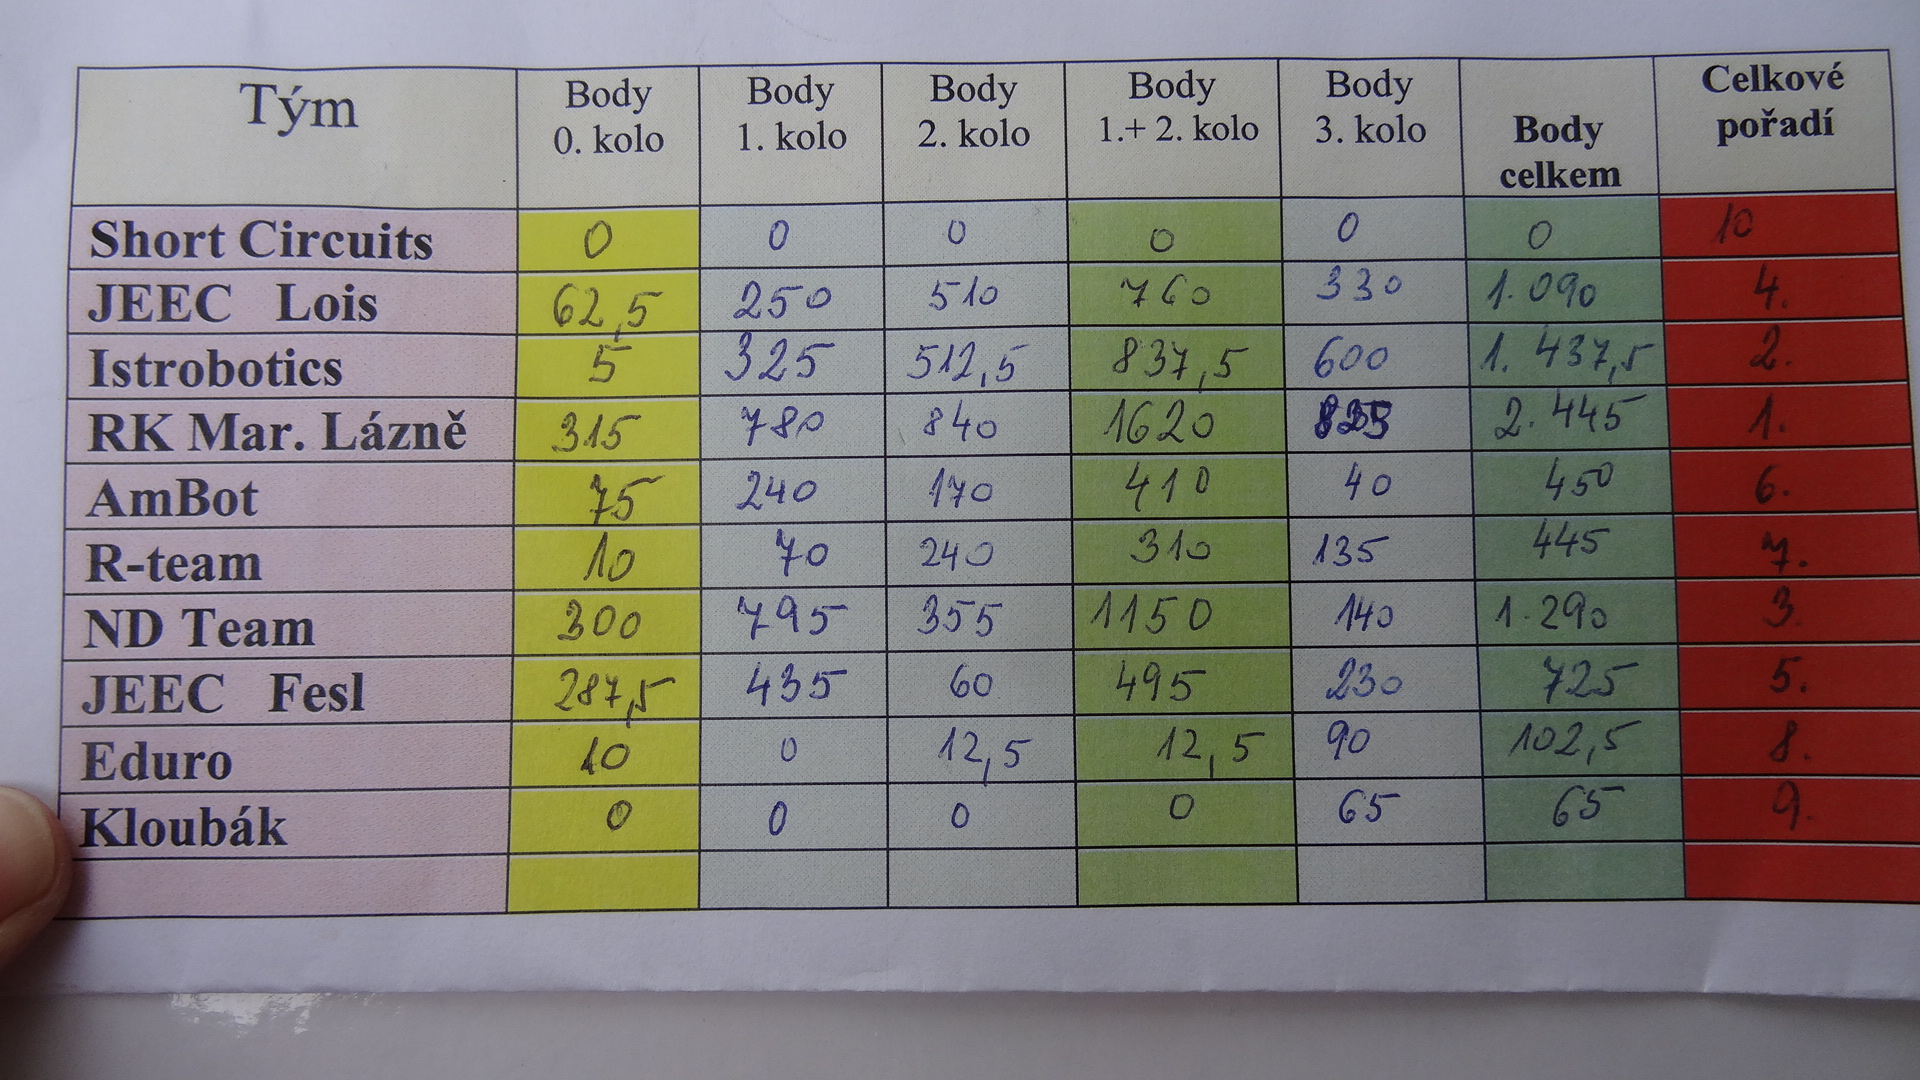 Tým Body 0. kolo Body 1. kolo Body 2. kolo Body 1.+ 2. kolo Body 3. kolo Body celkem Celkové pořadí
Short Circuits 0 0 0 0 0 0 10
JEEC Lois 62,5 250 510 760 330 1.090 4.
Istrobotics 5 325 512,5 837,5 600 1. 437,5 2.
RK Mar. Lázně 315 780 840 1620 2.445 1.
AmBot 75 240 170 410 40 450 6.
R-team 10 70 240 310 135 445 7.
ND Team 300 795 355 1150 140 1.290 3.
JEEC Fesl 287,5 435 60 495 230 725 5.
Eduro 10 0 12,5 12,5 90 102,5 8.
Kloubák 0 0 0 0 65 65 9.